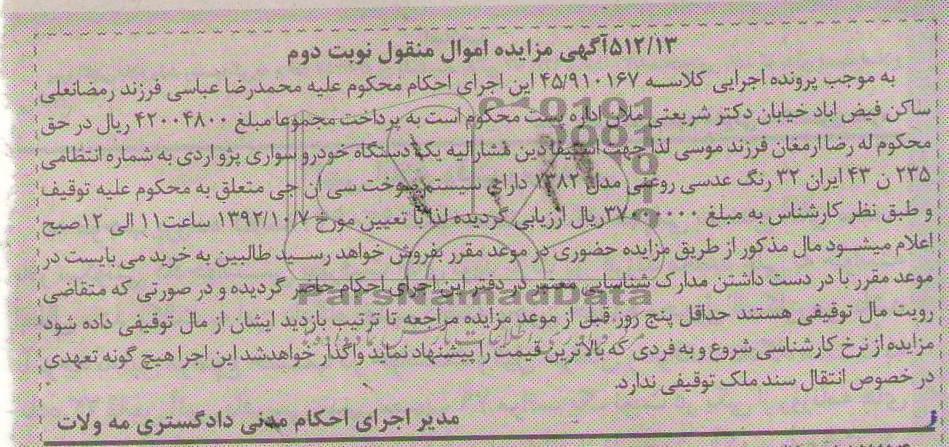 ۵۱۲/۱۳آگهی مزایده اموال منقول نوبت دوم
به موجب پرونده اجرایی کلاسه ۴۵/۹۱۰۱۶۷ این اجرای احکام محکوم علیه محمدرضا عباسی فرزند رمضانعلی
ساکن فیض اباد خیابان دکتر شریعتی املاک اداره پست محکوم است به پرداخت مجموعا مبلغ ۴۲۰۰۴۸۰۰ ریال در حق
محکوم له رضا ارمغان فرزند موسی لذا جهت استیفا دین مشارالیه یک دستگاه خودرو سواری پژو اردی به شماره انتظامی
۲۳۵ ن ۴۳ ایران ۳۲ رنگ عدسی روغنی مدل ۱۳۸۲ دارای سیستم سوخت سی ان جی متعلق به محکوم علیه توقیف
و طبق نظر کارشناس به مبلغ ریال ارزیابی گردیده لذا با تعیین مورخ ۱۳۹۲/۱۰/۷ ساعت۱۱ الی ۱۲صبح
اعلام میشود مال مذکور از طریق مزایده حضوری در موعد مقرر بفروش خواهد رسید طالبین به خرید می بایست در
موعد مقرر با در دست داشتن مدارک شناسایی معتبر در دفتر این اجرای احکام حاضر گردیده و در صورتی که متقاضی
رویت مال توقیفی هستند حداقل پنج روز قبل از موعد مزایده مراجعه تا ترتیب بازدید ایشان از مال توقیفی داده شود
مزایده از نرخ کارشناسی شروع و به فردی که بالاترین قیمت را پیشنهاد نماید واگذار خواهدشد این اجرا هیچ گونه تعهدی
در خصوص انتقال سند ملک توقیفی ندارد.
مدیر اجرای احکام مدنی دادگستری مه ولات
ParsNamadData